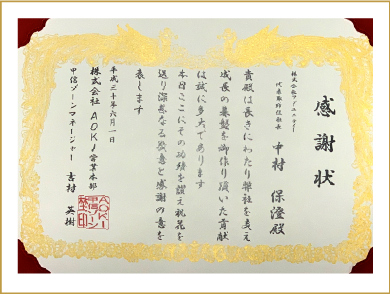 感謝状
株式会社アドエンター
代表取締役社長
中村 保澄殿
貴殿は長きにわたり弊社を支え
成長の基盤を御作り頂いた貢献
は誠に多大であります
本日ここにその功績を讃え祝花を
送り深甚なる敬意と感謝の意を
表します
平成三十年六月一日
株式会社 AOKI営業本部
甲信ゾーンマネージャー 吉村 英樹
AOKI
甲信ゾーン